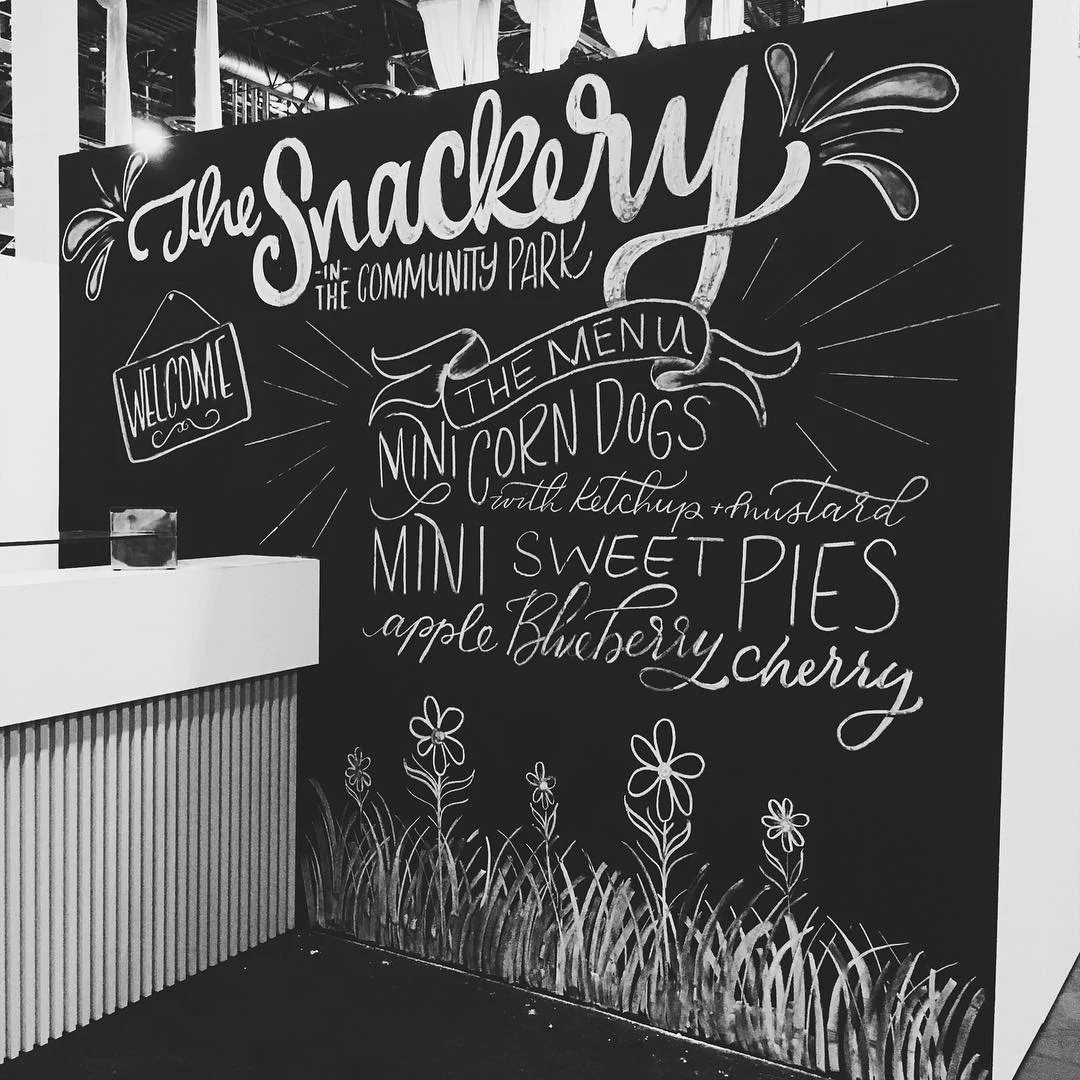 The Snackery
-IN- THE COMMUNITY PARK
WELCOME
THE MENU
MINI CORN DOGS
with ketchup + mustard
MINI SWEET PIES
apple Blueberry cherry